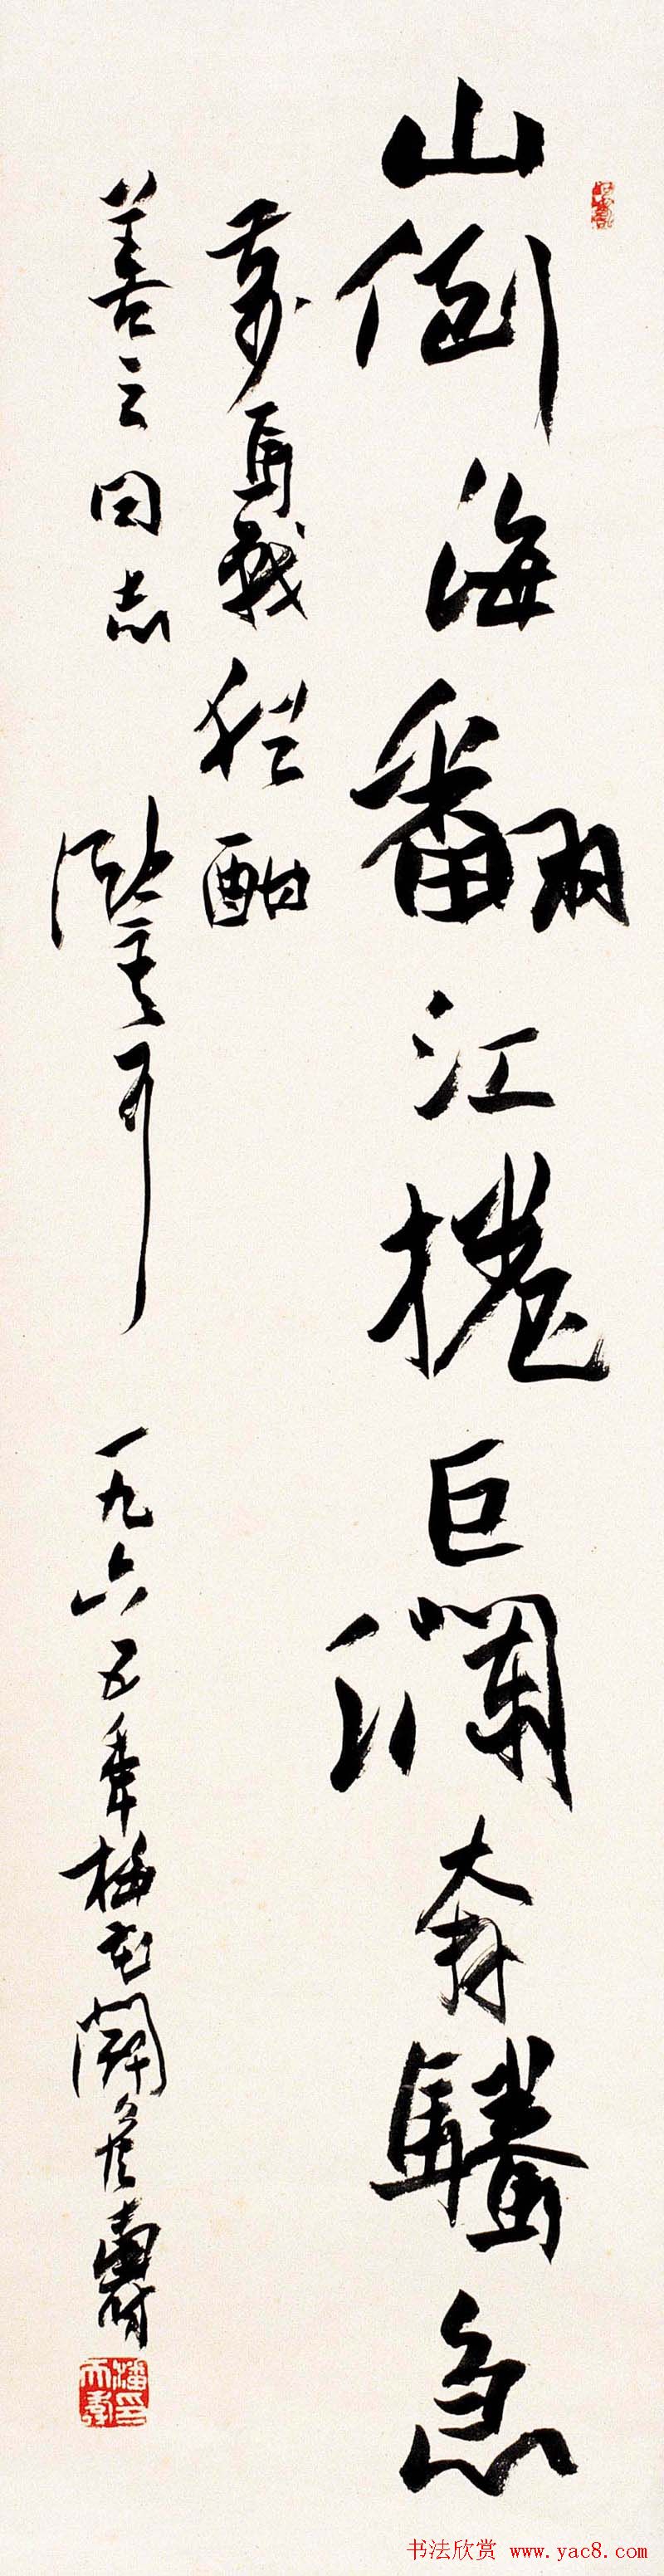 山倒海翻江捲巨瀾奔騰急
萬馬戰猶酣
善之同志
一九六五年梅花開候壽
潘天壽印
书法欣赏 www.yac8.com